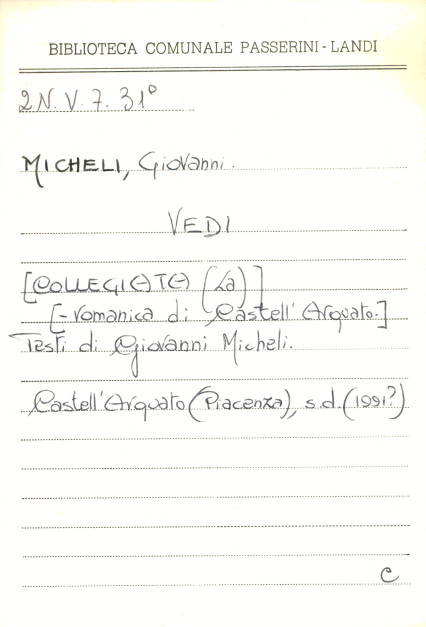 BIBLIOTECA COMUNALE PASSERINI - LANDI
2N. V. 7. 31°
MICHELI, Giovanni.
VEDI
[COLLEGIATA (La)]
[- romanica di Castell'Arquato.]
Testi di Giovanni Micheli.
Castell'Arquato (Piacenza), s.d. (1991?)
C